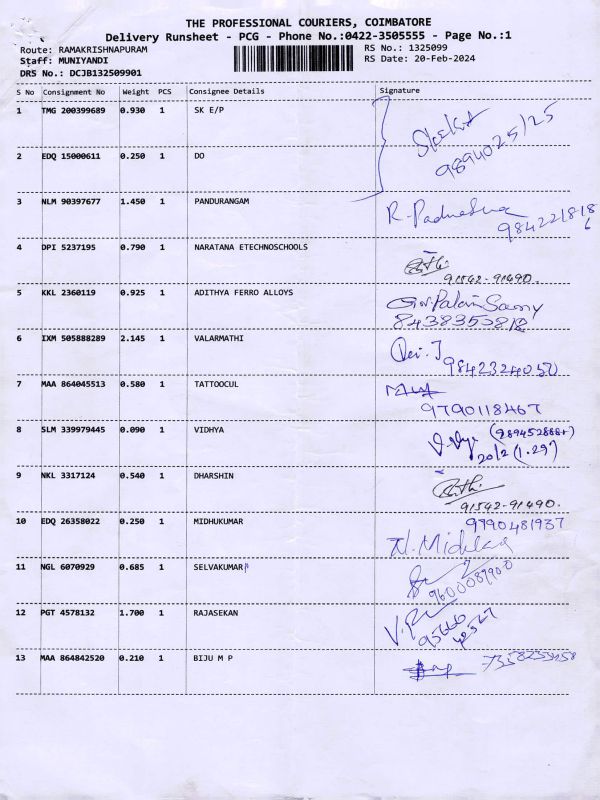 THE PROFESSIONAL COURIERS, COIMBATORE
Delivery Runsheet - PCG - Phone No.:0422-3505555 - Page No.:1
Route: RAMAKRISHNAPURAM RS No.: 1325099
Staff: MUNIYANDI RS Date: 20-Feb-2024
DRS No.: DCJB132509901
S No Consignment No Weight PCS Consignee Details Signature
1 TMG 200399689 0.930 1 SK E/P
9894025125
2 EDQ 15000611 0.250 1 DO
3 NLM 90397677 1.450 1 PANDURANGAM
4 DPI 5237195 0.790 1 NARATANA ETECHNOSCHOOLS
91542-91490.
5 KKL 2360119 0.925 1 ADITHYA FERRO ALLOYS
8438355812
6 IXM 505888289 2.145 1 VALARMATHI
9842324050
7 MAA 864045513 0.580 1 TATTOOCUL
9790118467
8 SLM 339979445 0.090 1 VIDHYA
20/2 (1.29)
9 NKL 3317124 0.540 1 DHARSHIN
91542-91490.
10 EDQ 26358022 0.250 1 MIDHUKUMAR 9790481937
11 NGL 6070929 0.685 1 SELVAKUMAR
12 PGT 4578132 1.700 1 RAJASEKAN
13 MAA 864842520 0.210 1 BIJU M P